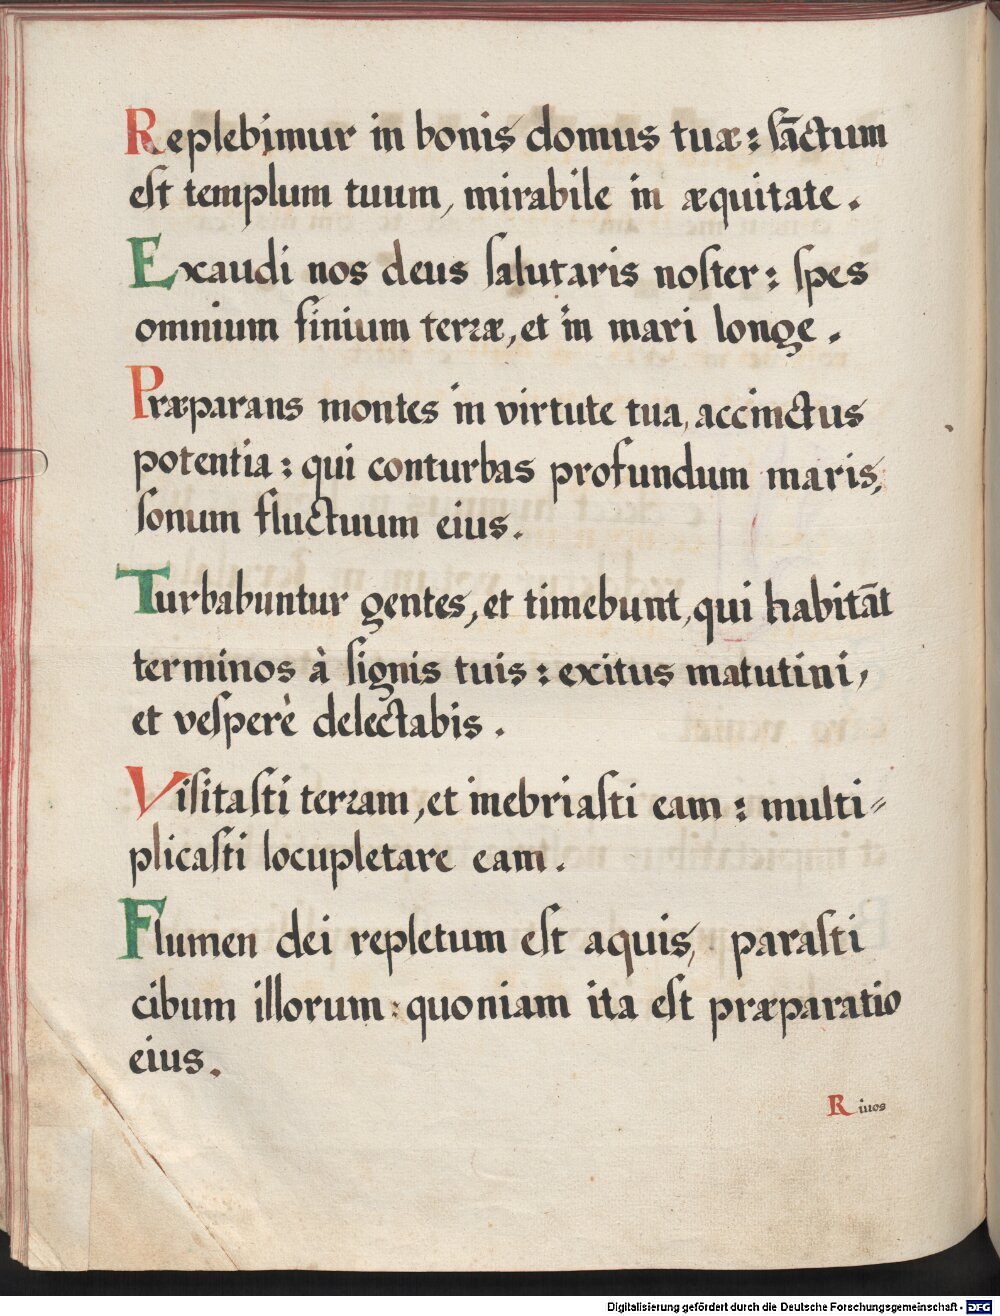 Replebimur in bonis domus tuæ : sāctum
est templum tuum, mirabile in æquitate .
Exaudi nos deus salutaris noster : spes
omnium finium terræ, et in mari longe .
Præparans montes in virtute tua, accinctus
potentia : qui conturbas profundum maris,
sonum fluctuum eius .
Turbabuntur gentes, et timebunt, qui habitāt
terminos à signis tuis : exitus matutini,
et vesperè delectabis .
Visitasti terram, et inebriasti eam : multi-
plicasti locupletare eam .
Flumen dei repletum est aquis, parasti
cibum illorum : quoniam ita est præparatio
eius .
Riuos
Digitalisierung gefördert durch die Deutsche Forschungsgemeinschaft - DFG